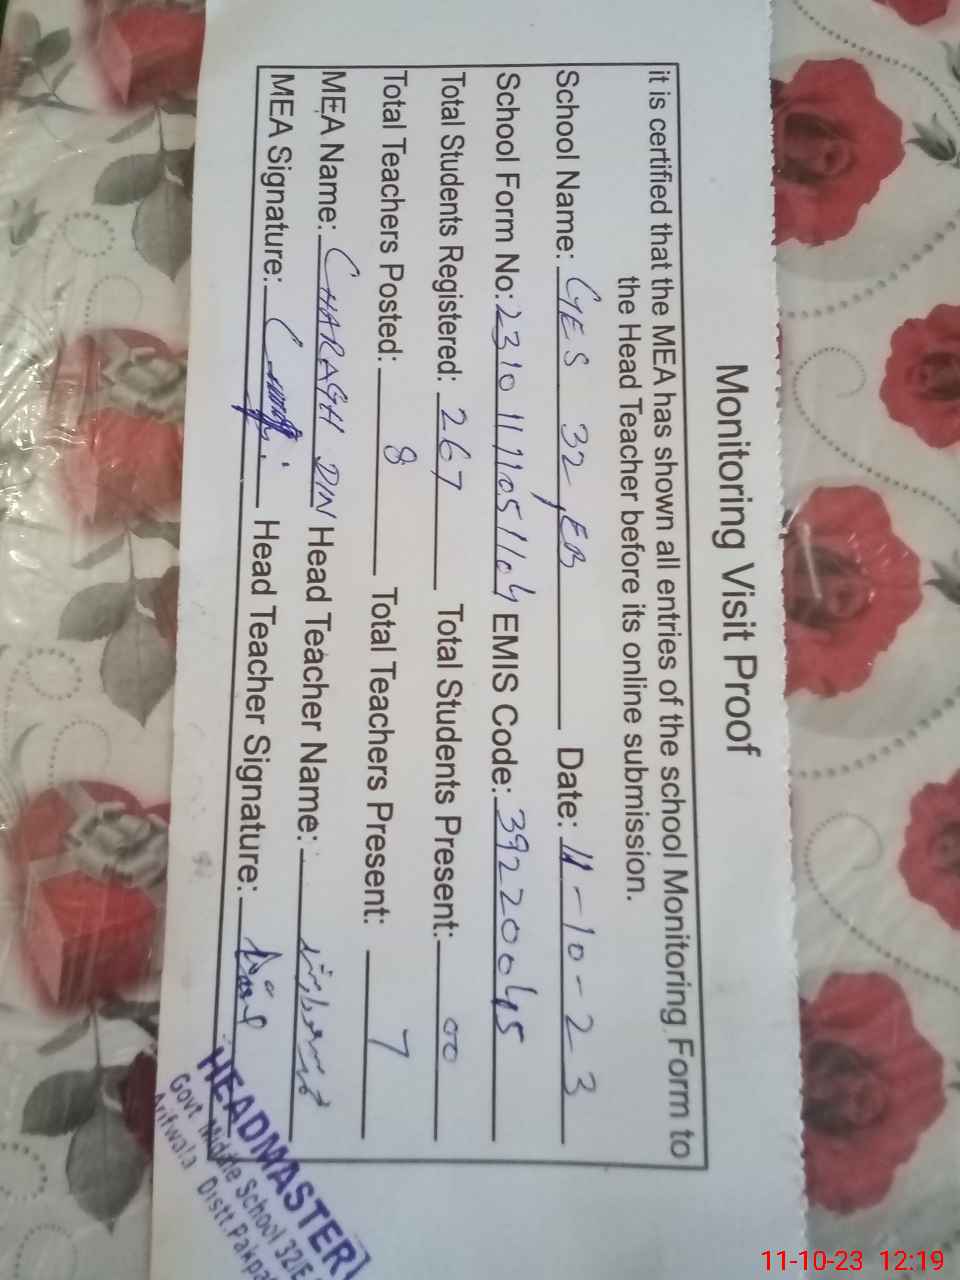 Monitoring Visit Proof
it is certified that the MEA has shown all entries of the school Monitoring Form to
the Head Teacher before its online submission.
School Name: GES 32/EB Date: 11-10-23
School Form No: 23101111051104 EMIS Code: 39220045
Total Students Registered: 267 Total Students Present: 00
Total Teachers Posted: 8 Total Teachers Present: 7
MEA Name: CHARAGH DIN Head Teacher Name:
MEA Signature: Head Teacher Signature:
HEADMASTER
Govt. Middle School 32/E
Arifwala Distt. Pakpa
11-10-23 12:19